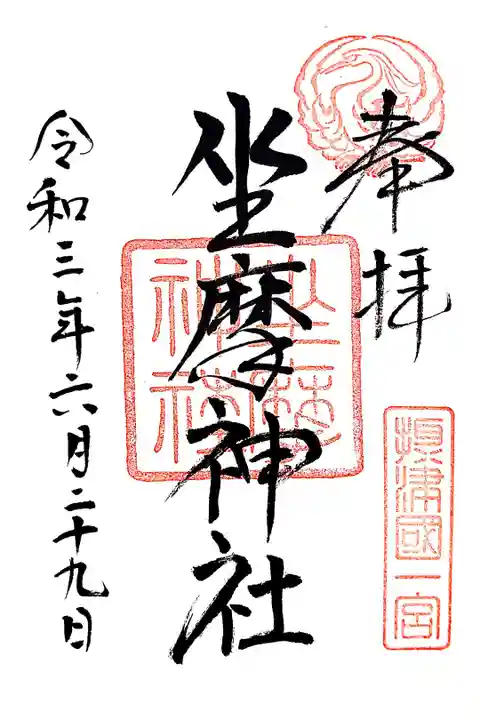 奉拝
摂津國一宮
坐摩神社
令和三年六月二十九日